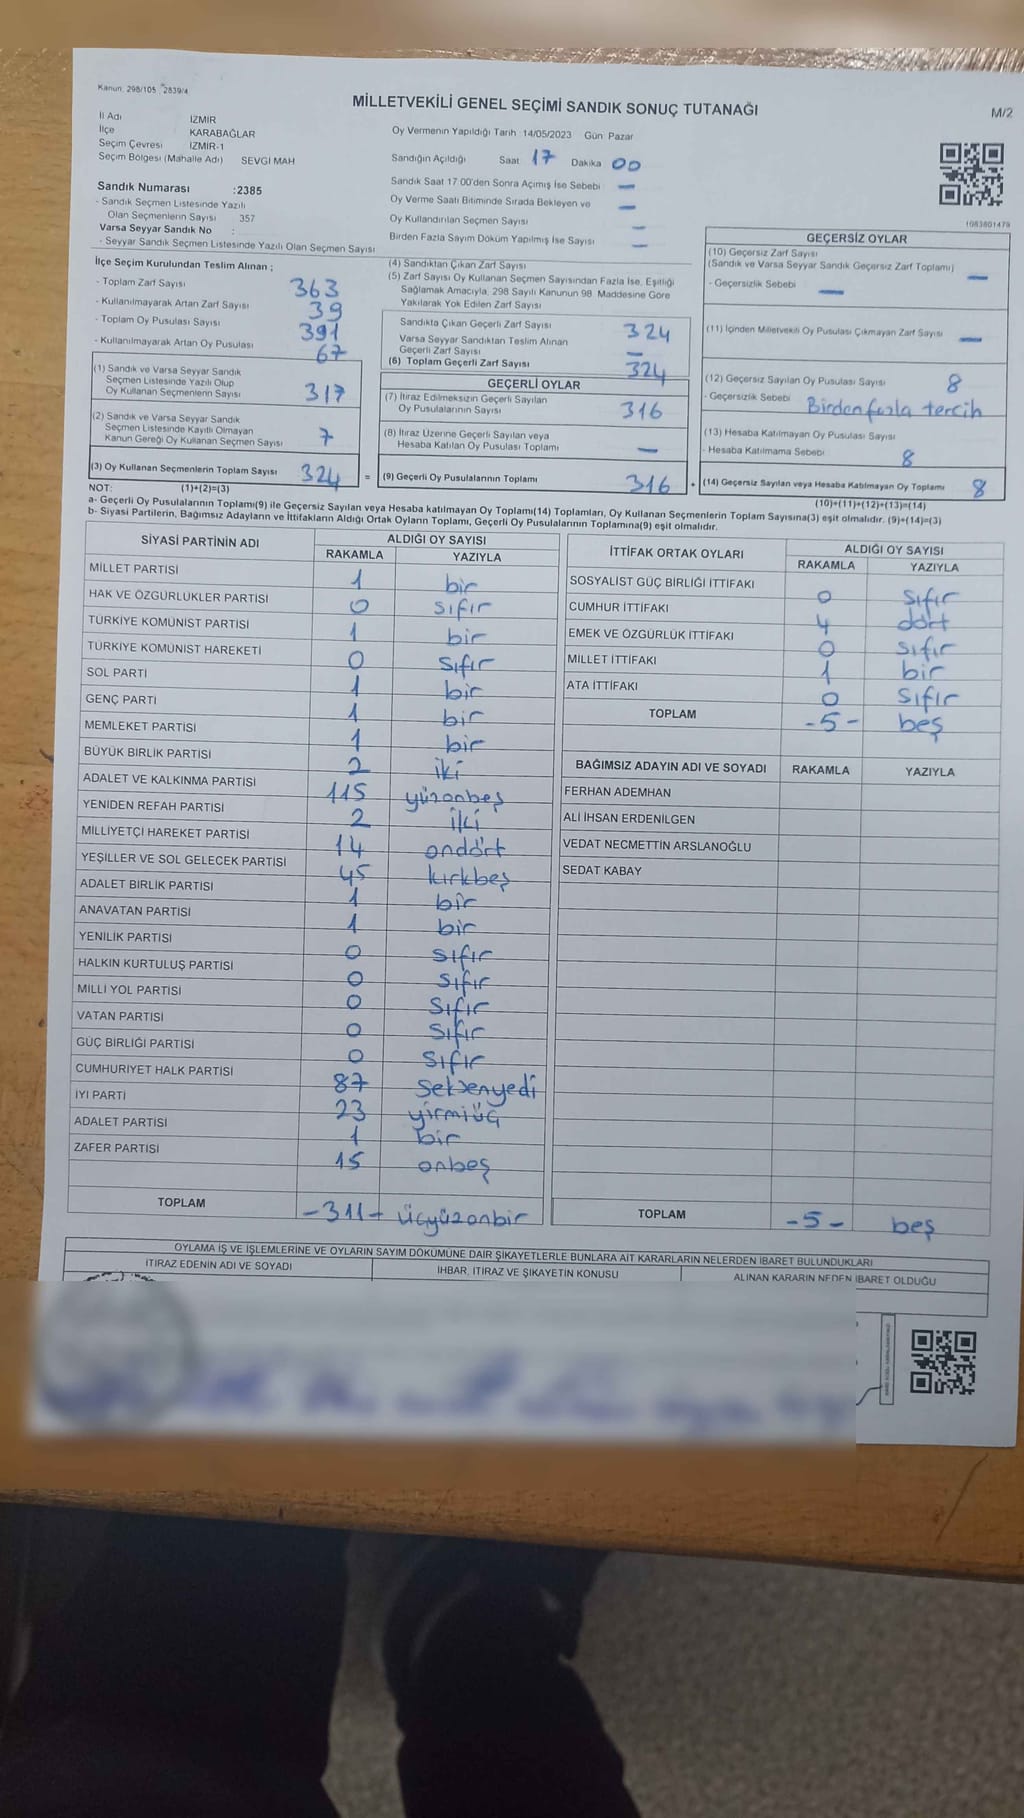 Kanun: 298/105 2839/4
MİLLETVEKİLİ GENEL SEÇİMİ SANDIK SONUÇ TUTANAĞI
M/2
İl Adı İZMİR
İlçe KARABAĞLAR
Seçim Çevresi İZMİR-1
Seçim Bölgesi (Mahalle Adı) SEVGİ MAH
Sandık Numarası :2385
- Sandık Seçmen Listesinde Yazılı
Olan Seçmenlerin Sayısı 357
Varsa Seyyar Sandık No :
- Seyyar Sandık Seçmen Listesinde Yazılı Olan Seçmen Sayısı
Oy Vermenin Yapıldığı Tarih 14/05/2023 Gün Pazar
Sandığın Açıldığı Saat 17 Dakika 00
Sandık Saat 17:00'den Sonra Açımış İse Sebebi —
Oy Verme Saati Bitiminde Sırada Bekleyen ve
Oy Kullandırılan Seçmen Sayısı —
Birden Fazla Sayım Döküm Yapılmış İse Sayısı —
1083801479
İlçe Seçim Kurulundan Teslim Alınan ;
- Toplam Zarf Sayısı 363
- Kullanılmayarak Artan Zarf Sayısı 39
- Toplam Oy Pusulası Sayısı 391
- Kullanılmayarak Artan Oy Pusulası 67
(1) Sandık ve Varsa Seyyar Sandık
Seçmen Listesinde Yazılı Olup
Oy Kullanan Seçmenlerin Sayısı 317
(2) Sandık ve Varsa Seyyar Sandık
Seçmen Listesinde Kayıtlı Olmayan
Kanun Gereği Oy Kullanan Seçmen Sayısı 7
(3) Oy Kullanan Seçmenlerin Toplam Sayısı 324 =
(4) Sandıktan Çıkan Zarf Sayısı
(5) Zarf Sayısı Oy Kullanan Seçmen Sayısından Fazla İse, Eşitliği
Sağlamak Amacıyla, 298 Sayılı Kanunun 98. Maddesine Göre
Yakılarak Yok Edilen Zarf Sayısı
Sandıkta Çıkan Geçerli Zarf Sayısı 324
Varsa Seyyar Sandıktan Teslim Alınan
Geçerli Zarf Sayısı —
(6) Toplam Geçerli Zarf Sayısı 324
GEÇERLİ OYLAR
(7) İtiraz Edilmeksizin Geçerli Sayılan
Oy Pusulalarının Sayısı 316
(8) İtiraz Üzerine Geçerli Sayılan veya
Hesaba Katılan Oy Pusulası Toplamı —
(9) Geçerli Oy Pusulalarının Toplamı 316 +
GEÇERSİZ OYLAR
(10) Geçersiz Zarf Sayısı
(Sandık ve Varsa Seyyar Sandık Geçersiz Zarf Toplamı) —
- Geçersizlik Sebebi —
(11) İçinden Milletvekili Oy Pusulası Çıkmayan Zarf Sayısı —
(12) Geçersiz Sayılan Oy Pusulası Sayısı 8
- Geçersizlik Sebebi Birden fazla tercih
(13) Hesaba Katılmayan Oy Pusulası Sayısı
- Hesaba Katılmama Sebebi 8
(14) Geçersiz Sayılan veya Hesaba Katılmayan Oy Toplamı 8
NOT: (1)+(2)=(3)
(10)+(11)+(12)+(13)=(14)
a- Geçerli Oy Pusulalarının Toplamı(9) ile Geçersiz Sayılan veya Hesaba katılmayan Oy Toplamı(14) Toplamları, Oy Kullanan Seçmenlerin Toplam Sayısına(3) eşit olmalıdır. (9)+(14)=(3)
b- Siyasi Partilerin, Bağımsız Adayların ve İttifakların Aldığı Ortak Oyların Toplamı, Geçerli Oy Pusulalarının Toplamına(9) eşit olmalıdır.
SİYASİ PARTİNİN ADI ALDIĞI OY SAYISI
RAKAMLA YAZIYLA
MİLLET PARTİSİ 1 bir
HAK VE ÖZGÜRLÜKLER PARTİSİ 0 sıfır
TÜRKİYE KOMÜNİST PARTİSİ 1 bir
TÜRKİYE KOMÜNİST HAREKETİ 0 sıfır
SOL PARTİ 1 bir
GENÇ PARTİ 1 bir
MEMLEKET PARTİSİ 1 bir
BÜYÜK BİRLİK PARTİSİ 2 iki
ADALET VE KALKINMA PARTİSİ 115 yüzonbeş
YENİDEN REFAH PARTİSİ 2 iki
MİLLİYETÇİ HAREKET PARTİSİ 14 ondört
YEŞİLLER VE SOL GELECEK PARTİSİ 45 kırkbeş
ADALET BİRLİK PARTİSİ 1 bir
ANAVATAN PARTİSİ 1 bir
YENİLİK PARTİSİ 0 sıfır
HALKIN KURTULUŞ PARTİSİ 0 sıfır
MİLLİ YOL PARTİSİ 0 sıfır
VATAN PARTİSİ 0 sıfır
GÜÇ BİRLİĞİ PARTİSİ 0 sıfır
CUMHURİYET HALK PARTİSİ 87 seksenyedi
İYİ PARTİ 23 yirmiüç
ADALET PARTİSİ 1 bir
ZAFER PARTİSİ 15 onbeş
TOPLAM -311- üçyüzonbir
İTTİFAK ORTAK OYLARI ALDIĞI OY SAYISI
RAKAMLA YAZIYLA
SOSYALİST GÜÇ BİRLİĞİ İTTİFAKI 0 sıfır
CUMHUR İTTİFAKI 4 dört
EMEK VE ÖZGÜRLÜK İTTİFAKI 0 sıfır
MİLLET İTTİFAKI 1 bir
ATA İTTİFAKI 0 sıfır
TOPLAM -5- beş
BAĞIMSIZ ADAYIN ADI VE SOYADI RAKAMLA YAZIYLA
FERHAN ADEMHAN
ALİ İHSAN ERDENİLGEN
VEDAT NECMETTİN ARSLANOĞLU
SEDAT KABAY
TOPLAM -5- beş
OYLAMA İŞ VE İŞLEMLERİNE VE OYLARIN SAYIM DÖKÜMÜNE DAİR ŞİKAYETLERLE BUNLARA AİT KARARLARIN NELERDEN İBARET BULUNDUKLARI
İTİRAZ EDENİN ADI VE SOYADI İHBAR, İTİRAZ VE ŞİKAYETİN KONUSU ALINAN KARARIN NEDEN İBARET OLDUĞU